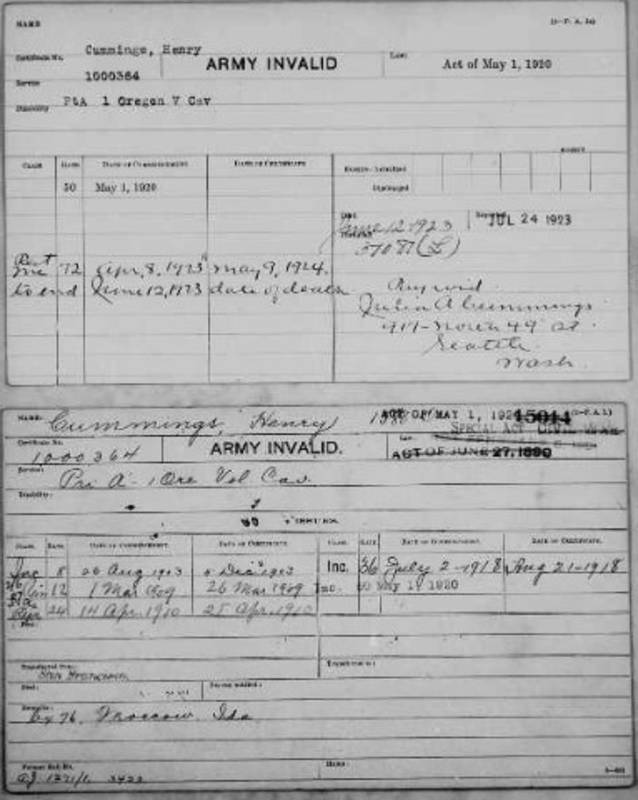 NAME
(3-P. A. 1a)
Cummings, Henry
Certificate No. ARMY INVALID Law: Act of May 1, 1920
1000364
Service
PtA 1 Oregon V Cav
Disability
CLASS RATE DATE OF COMMENCEMENT DATE OF CERTIFICATE
50 May 1, 1920
Discharged
Died June 12 1923 Reported JUL 24 1923
72 Apr. 8, 1923 May 9, 1924.
to end June 12, 1923 date of death
Julia A Cummings
917- North 49 St.
Seattle
Wash.
NAME: Cummings, Henry ACT OF MAY 1, 192 15014 (3-P.A.1)
SPECIAL ACT CIVIL WAR
Certificate No. Law:
1,000364 ARMY INVALID. ACT OF JUNE 27, 1890
Service: Pri A - 1 Ore Vol Cav.
Disability:
ISSUES.
CLASS. RATE. DATE OF COMMENCEMENT. DATE OF CERTIFICATE. CLASS. RATE. DATE OF COMMENCEMENT. DATE OF CERTIFICATE.
Inc 8 26 Aug 1903 5 Dec 1903 Inc. 36 July 2-1918 Aug 21-1918
12 1 Mar 1909 26 Mar 1909 Inc. 50 May 1, 1920
24 14 Apr. 1910 25 Apr. 1910
Transferred from: Transferred to:
San Francisco
Died:
Remarks:
Ex 76, Moscow, Ida
Former Roll No. Home: